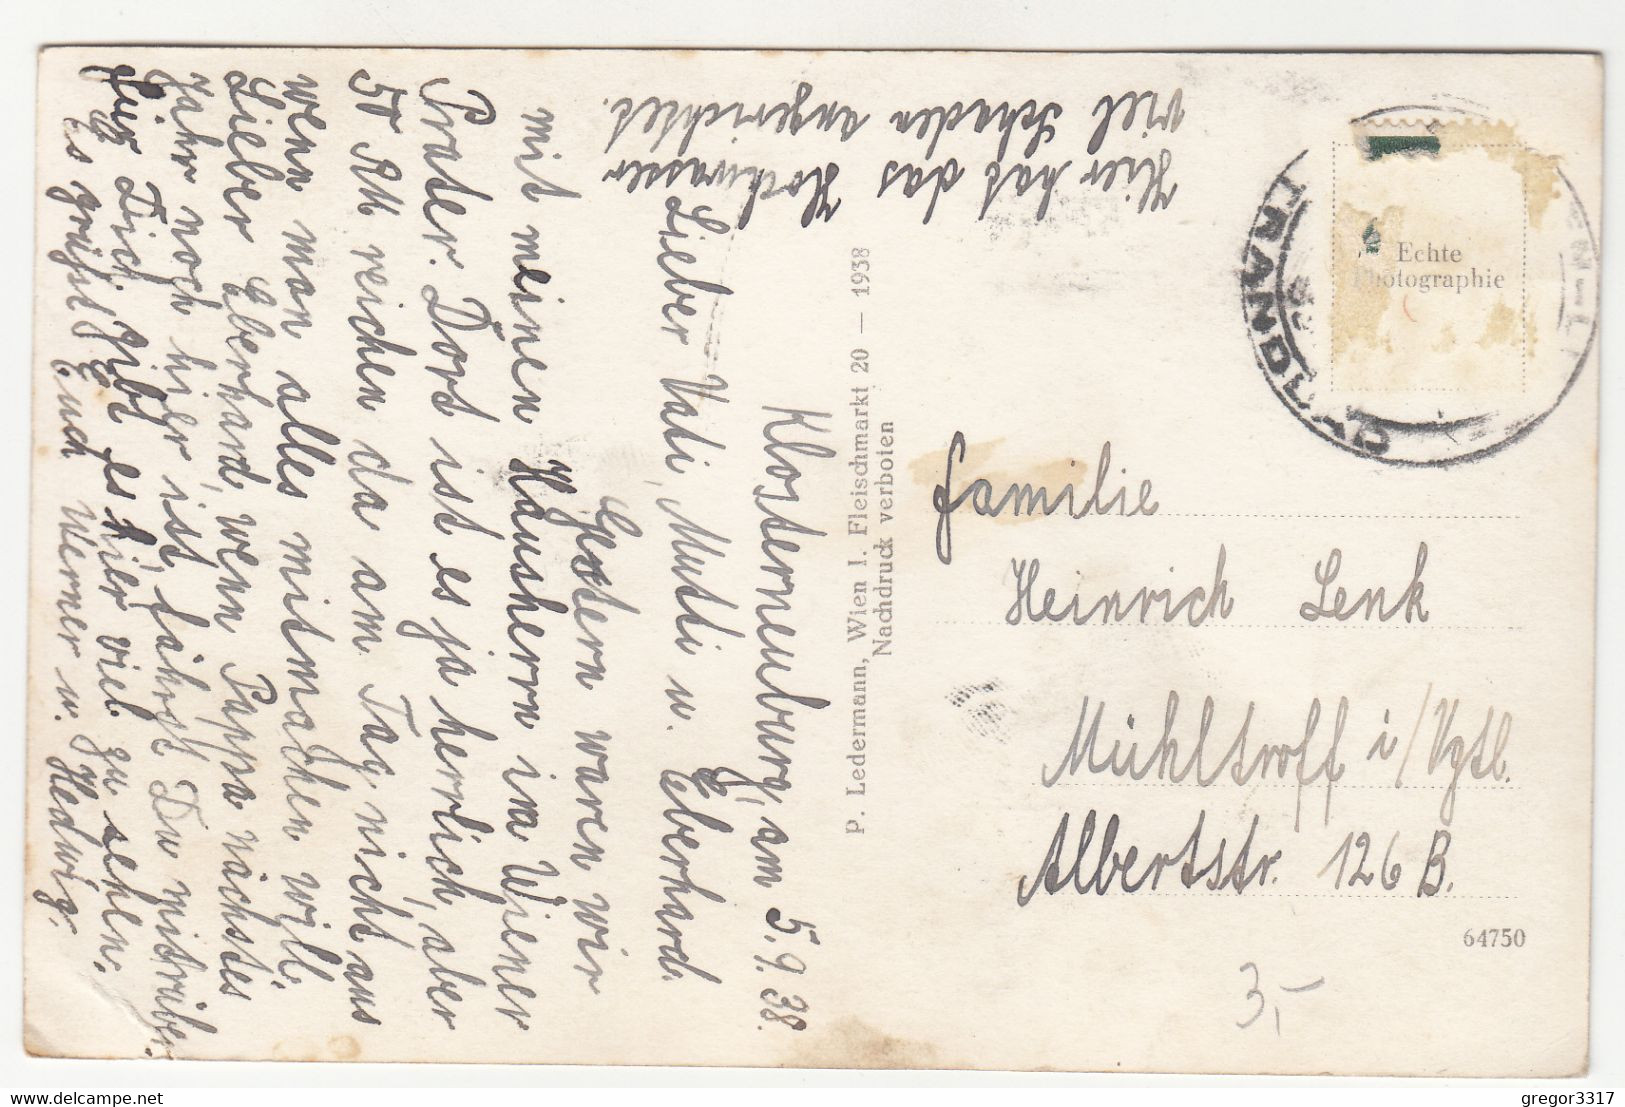 Klosterneuburg, am 5.9.38.
Lieber Vati, Mutti u. Eberhard.
Gestern waren wir
mit meinen Hausherrn im Wiener
Prater. Dort ist es ja herrlich, aber
50 RM reichen da am Tag nicht aus
wenn man alles mitmachen will.
Lieber Eberhard, wenn Pappa nächstes
Jahr noch hier ist, fährst Du mit rüber.
Für Dich gibt es hier viel zu sehen.
Es grüßt Euch Werner u. Hedwig.
Hier hat das Hochwasser
viel Schaden angerichtet.
P. Ledermann, Wien I. Fleischmarkt 20 — 1938
Nachdruck verboten
Echte
Photographie
Familie
Heinrich Lenk
Mühltroff i/Vgtl.
Albertstr. 126 B.
64750
3,-
delcampe.net
gregor3317